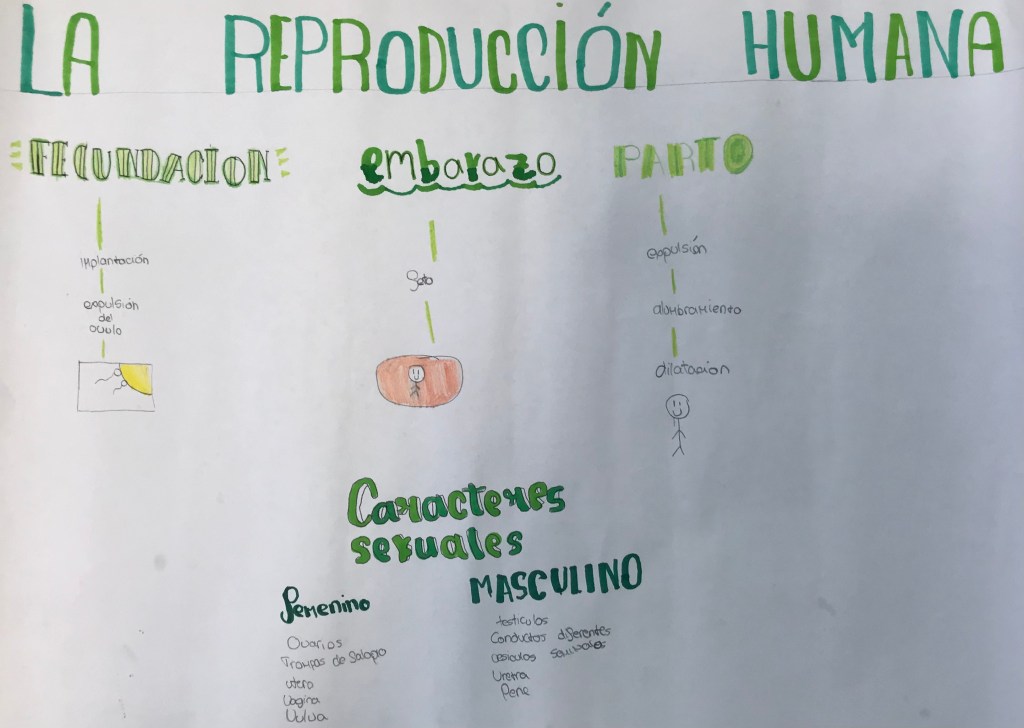 LA REPRODUCCIÓN HUMANA
FECUNDACION
implantación
expulsión
del
ovulo
embarazo
feto
PARTO
expulsión
alumbramiento
dilatacion
Caracteres
sexuales
Femenino
Ovarios
Trompas de Falopio
utero
Vagina
Vulva
MASCULINO
testiculos
Conductos diferentes
Uretra
Pene